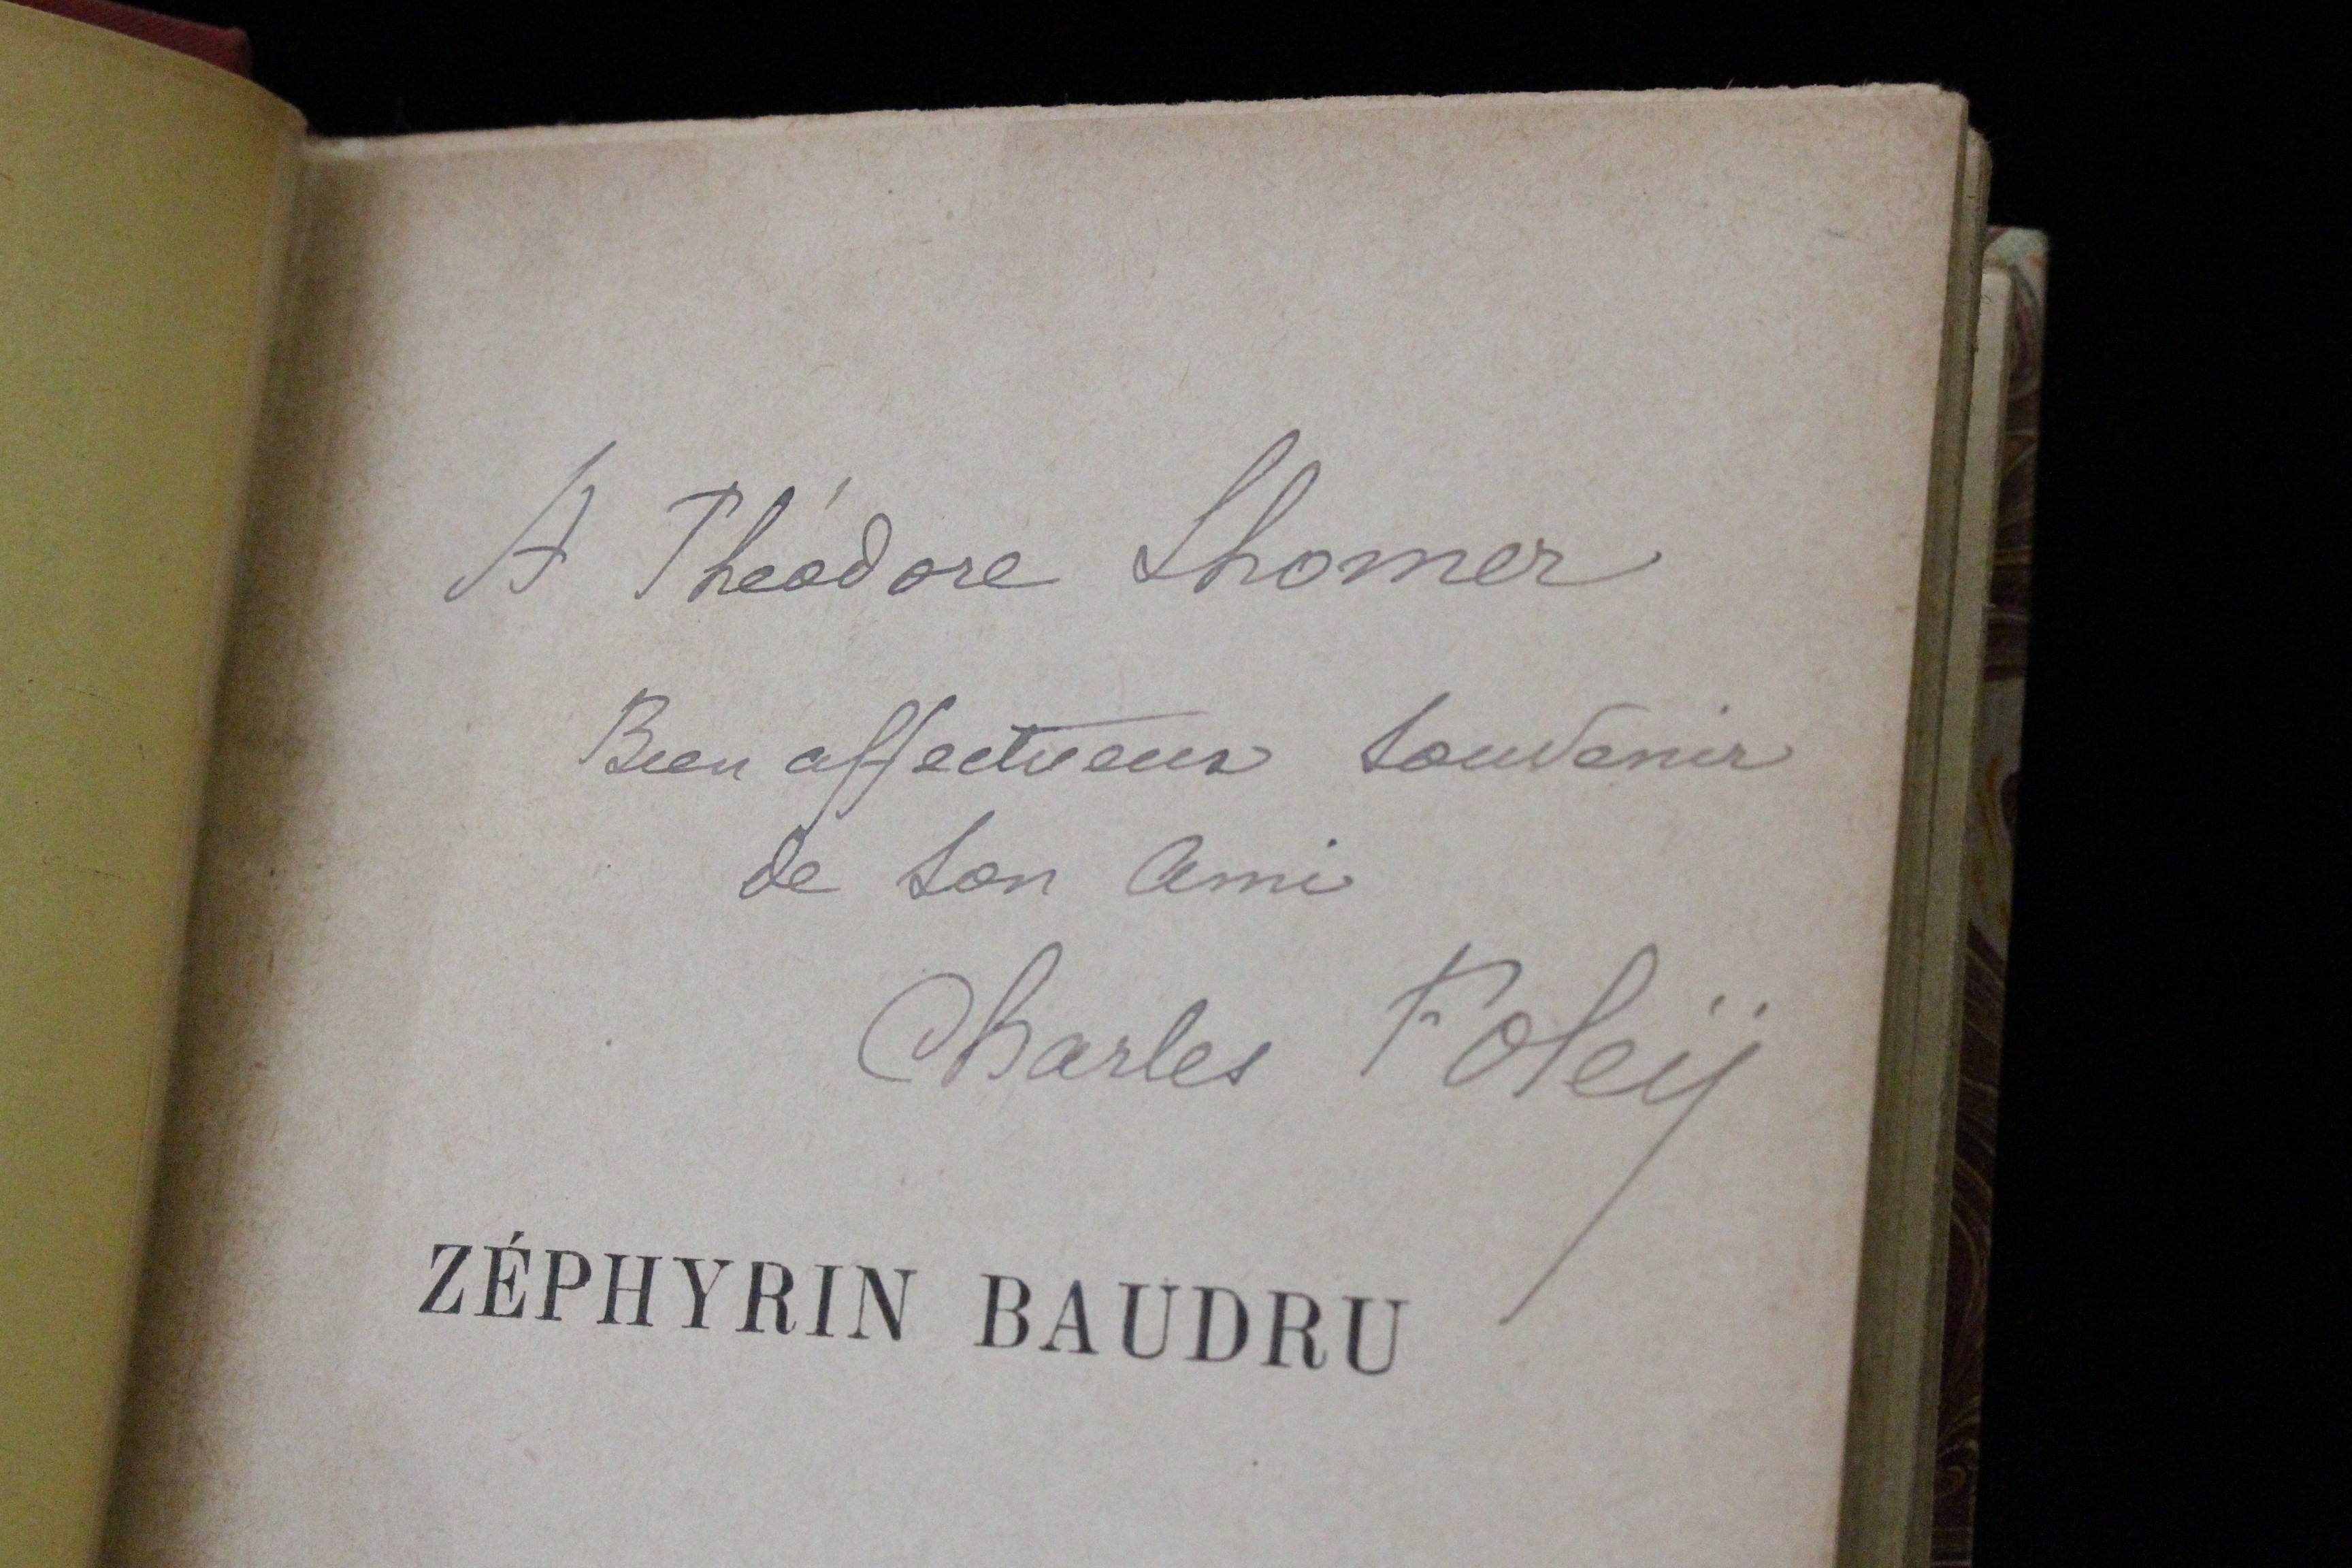 A Théodore Lhomer
Bien affectueux souvenir
de son ami
Charles Foleÿ
ZÉPHYRIN BAUDRU